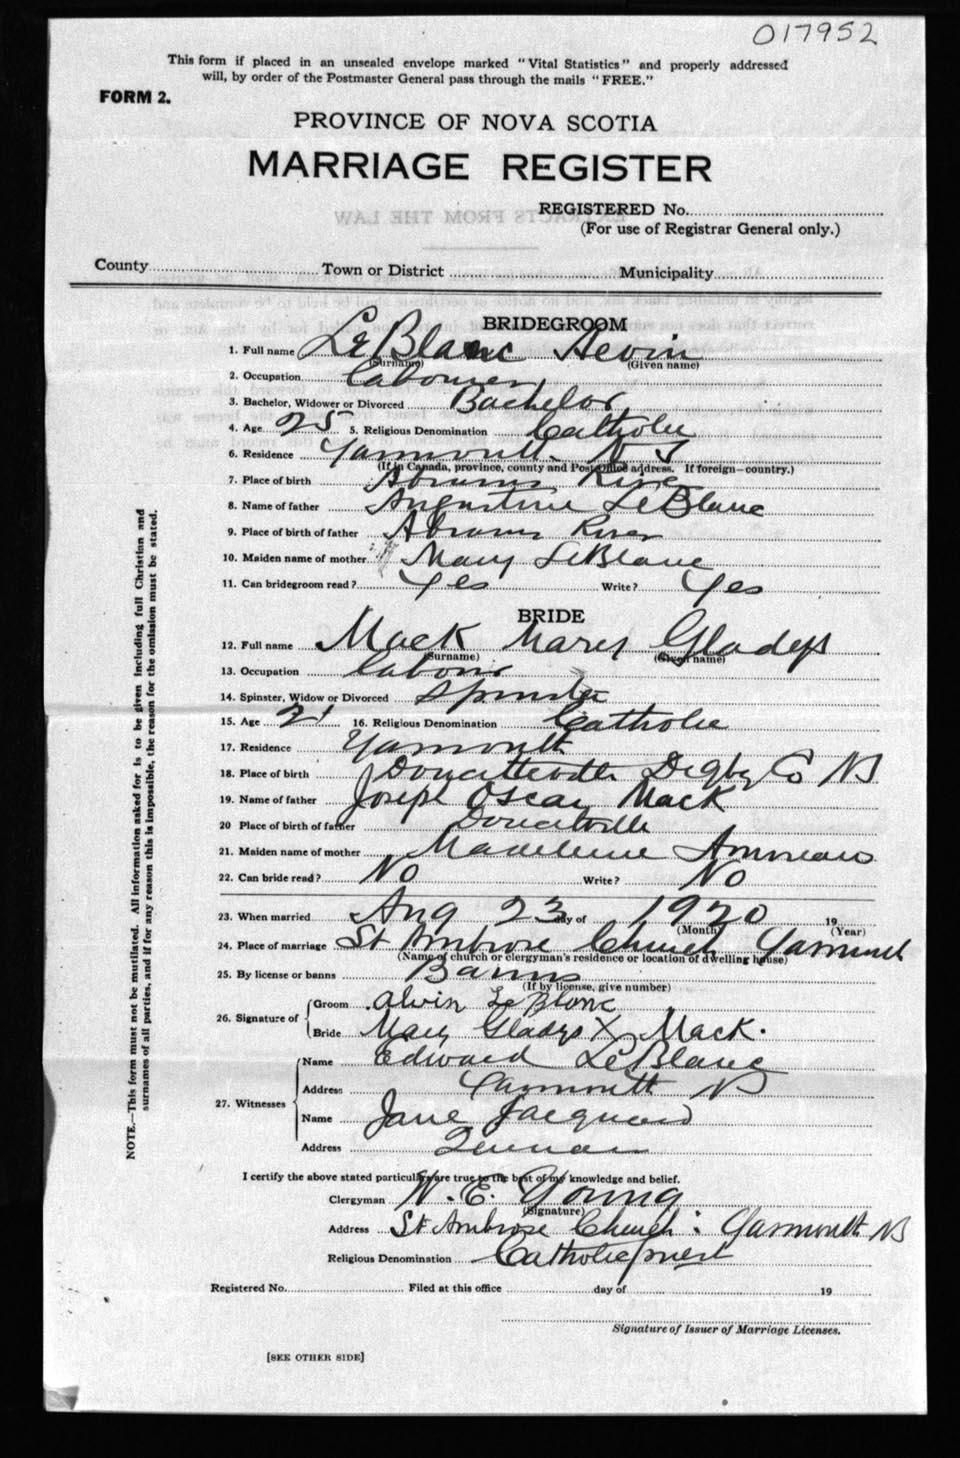 017952
This form if placed in an unsealed envelope marked "Vital Statistics" and properly addressed
will, by order of the Postmaster General pass through the mails "FREE."
FORM 2.
PROVINCE OF NOVA SCOTIA
MARRIAGE REGISTER
REGISTERED No.
(For use of Registrar General only.)
County Town or District Municipality
BRIDEGROOM
1. Full name LeBlanc
(Surname) (Given name)
2. Occupation Labourer
3. Bachelor, Widower or Divorced Bachelor
4. Age 25 5. Religious Denomination Catholic
6. Residence Yarmouth N S
(If in Canada, province, county and Post Office address. If foreign—country.)
7. Place of birth Abrams River
8. Name of father Augustine LeBlanc
9. Place of birth of father Abrams River
10. Maiden name of mother Mary LeBlanc
11. Can bridegroom read? Yes Write? Yes
BRIDE
12. Full name Mack Mary Gladys
(Surname) (Given name)
13. Occupation Labour
14. Spinster, Widow or Divorced Spinster
15. Age 21 16. Religious Denomination Catholic
17. Residence Yarmouth
18. Place of birth Doucetteville Digby Co NS
19. Name of father Joseph Oscar Mack
20 Place of birth of father Doucetville
21. Maiden name of mother Madeleine
22. Can bride read? No Write? No
23. When married Aug 23 day of 1920 19
(Month) (Year)
24. Place of marriage St Ambrose Church Yarmouth
(Name of church or clergyman's residence or location of dwelling house)
25. By license or banns Banns
(If by license, give number)
26. Signature of
Groom Alvin LeBlanc
Bride Mary Gladys X Mack.
27. Witnesses
Name Edward LeBlanc
Address Yarmouth NS
Name Jane Jacquard
Address Quinan
I certify the above stated particulars are true to the best of my knowledge and belief.
Clergyman W. E. Young
(Signature)
Address St Ambrose Church: Yarmouth NS
Religious Denomination Catholic priest
Registered No. Filed at this office day of 19
Signature of Issuer of Marriage Licenses.
[SEE OTHER SIDE]
NOTE.—This form must not be mutilated. All information asked for is to be given including full Christian and
surnames of all parties, and if for any reason this is impossible, the reason for the omission must be stated.